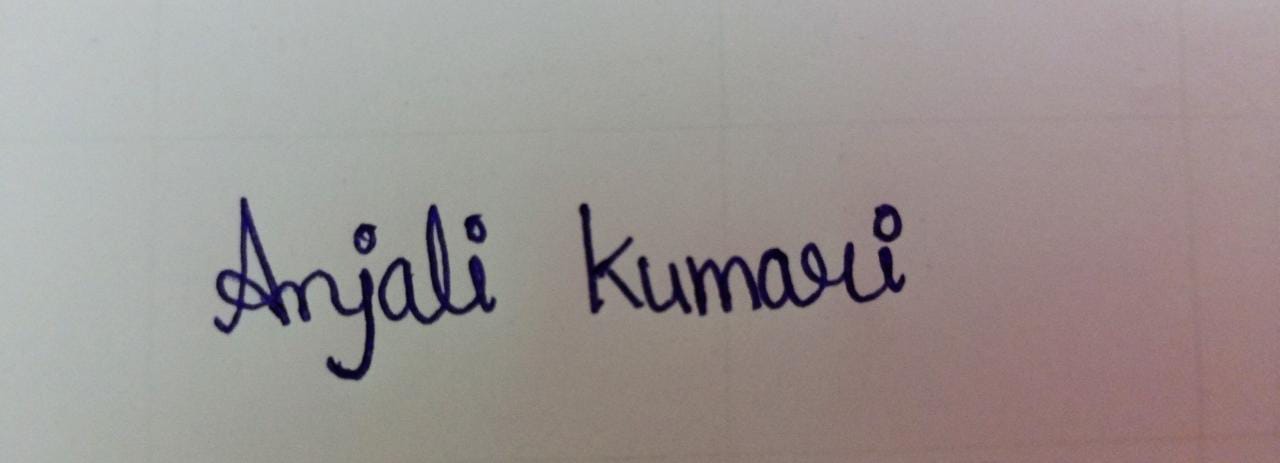 Anjali kumari